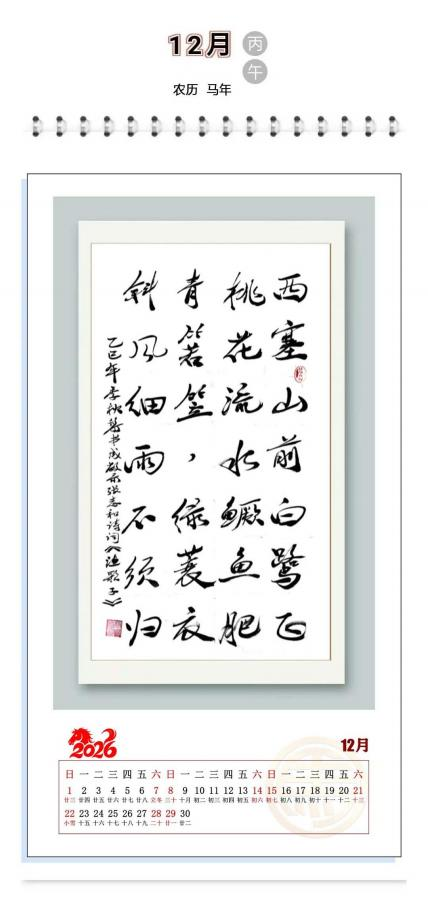 12月
丙
午
农历 马年
西塞山前白鹭飞
桃花流水鳜鱼肥
青箬笠，绿蓑衣
斜风细雨不须归
乙巳年季秋书张志和诗词《渔歌子》
2026
12月
日 一 二 三 四 五 六 日 一 二 三 四 五 六 日 一 二 三 四 五 六
1 2 3 4 5 6 7 8 9 10 11 12 13 14 15 16 17 18 19 20 21
廿三 廿四 廿五 廿六 廿七 廿八 立冬 三十 十月 初二 初三 初四 初五 初六 初七 初八 初九 初十 十一 十二 十三
22 23 24 25 26 27 28 29 30
小雪 十五 十六 十七 十八 十九 二十 廿一 廿二